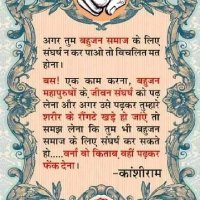 अगर तुम बहुजन समाज के लिए
संघर्ष न कर पाओ तो विचलित मत
होना।
बस! एक काम करना, बहुजन
महापुरुषों के जीवन संघर्ष को पढ़
लेना और अगर उसे पढ़कर तुम्हारे
शरीर के रौंगटे खड़े हो जाएं तो
समझ लेना कि तुम भी बहुजन
समाज के लिए संघर्ष कर सकते
हो.....वर्ना वो किताब वहीं पढ़कर
फेंक देना।
-कांशीराम